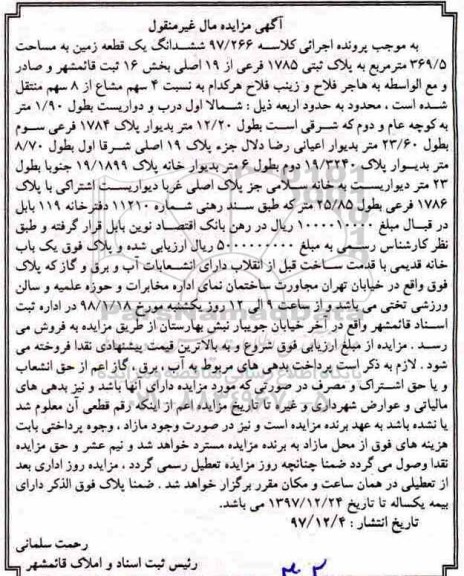 آگهی مزایده مال غیرمنقول
به موجب پرونده اجرائی کلاسه ۹۷/۲۶۶ ششدانگ یک قطعه زمین به مساحت
۳۶۹/۵ مترمربع به پلاک ثبتی ۱۷۸۵ فرعی از ۱۹ اصلی بخش ۱۶ ثبت قائمشهر و صادر
و مع الواسطه به هاجر فلاح و زینب فلاح هرکدام به نسبت ۴ سهم مشاع از ۸ سهم منتقل
شده است ، محدود به حدود اربعه ذیل : شمالا اول درب و دواریست بطول ۱/۹۰ متر
به کوچه عام و دوم که شرقی است بطول ۱۲/۲۰ متر بدیوار پلاک ۱۷۸۴ فرعی سوم
بطول ۲۳/۶۰ متر بدیوار اعیانی رضا دلال جزء پلاک ۱۹ اصلی شرقا اول بطول ۸/۷۰
متر بدیوار پلاک ۱۹/۳۲۴۰ دوم بطول ۶ متر بدیوار خانه پلاک ۱۹/۱۸۹۹ جنوبا بطول
۲۳ متر دیواریست به خانه سلامی جز پلاک اصلی غربا دیواریست اشتراکی با پلاک
۱۷۸۶ فرعی بطول ۲۵/۸۵ متر که طبق سند رهنی شماره ۱۱۲۱۰ دفترخانه ۱۱۹ بابل
در قبال مبلغ ۱۰۰۰۰۱۰۰۰۰ ریال در رهن بانک اقتصاد نوین بابل قرار گرفته و طبق
نظر کارشناس رسمی به مبلغ ۵۰۰۰۰۰۰۰۰۰ ریال ارزیابی شده و پلاک فوق یک باب
خانه قدیمی با قدمت ساخت قبل از انقلاب دارای انشعابات آب و برق و گاز که پلاک
فوق واقع در خیابان تهران مجاورت ساختمان نمای اداره مخابرات و حوزه علمیه و سالن
ورزشی تختی می باشد و از ساعت ۹ الی ۱۲ روز یکشنبه مورخ ۹۸/۱/۱۸ در اداره ثبت
اسناد قائمشهر واقع در آخر خیابان جویبار نبش بهارستان از طریق مزایده به فروش می
رسد . مزایده از مبلغ ارزیابی فوق شروع و به بالاترین قیمت پیشنهادی نقدا فروخته می
شود . لازم به ذکر است پرداخت بدهی های مربوط به آب ، برق ، گاز اعم از حق انشعاب
و یا حق اشتراک و مصرف در صورتی که مورد مزایده دارای آنها باشد و نیز بدهی های
مالیاتی و عوارض شهرداری و غیره تا تاریخ مزایده اعم از اینکه رقم قطعی آن معلوم شد
یا نشده باشد به عهد برنده مزایده است و نیز در صورت وجود مازاد ، وجوه پرداختی بابت
هزینه های فوق از محل مازاد به برنده مزایده مسترد خواهد شد و نیم عشر و حق مزایده
نقدا وصول می گردد ضمنا چنانچه روز مزایده تعطیل رسمی گردد ، مزایده روز اداری بعد
از تعطیلی در همان ساعت و مکان مقرر برگزار خواهد شد . ضمنا پلاک فوق الذکر دارای
بیمه یکساله تا تاریخ ۱۳۹۷/۱۲/۲۴ می باشد.
تاریخ انتشار : ۹۷/۱۲/۴
رحمت سلمانی
رئیس ثبت اسناد و املاک قائمشهر